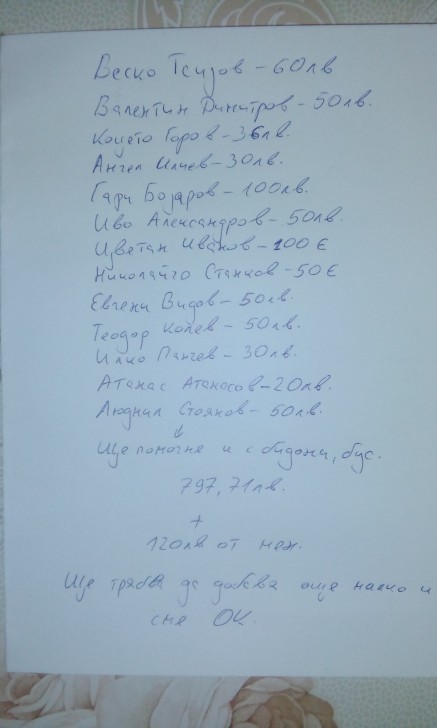 Веско Теизов – 60лв
Валентин Димитров – 50лв.
Коцето Горов – 36лв.
Ангел Илчев – 30лв.
Гари Бозаров – 100лв.
Иво Александров – 50лв.
Цветан Иванов – 100 €
Николайчо Станков – 50 €
Евгени Видов – 50лв.
Теодор Колев – 50лв.
Илко Панчев – 30лв.
Атанас Атанасов – 20лв.
Людмил Стоянов – 50лв.
↓
Ще помогне и с бидони, бус.
797,71лв.
+
120лв от мен.
Ще трябва да добавя още малко и
сме ОК.